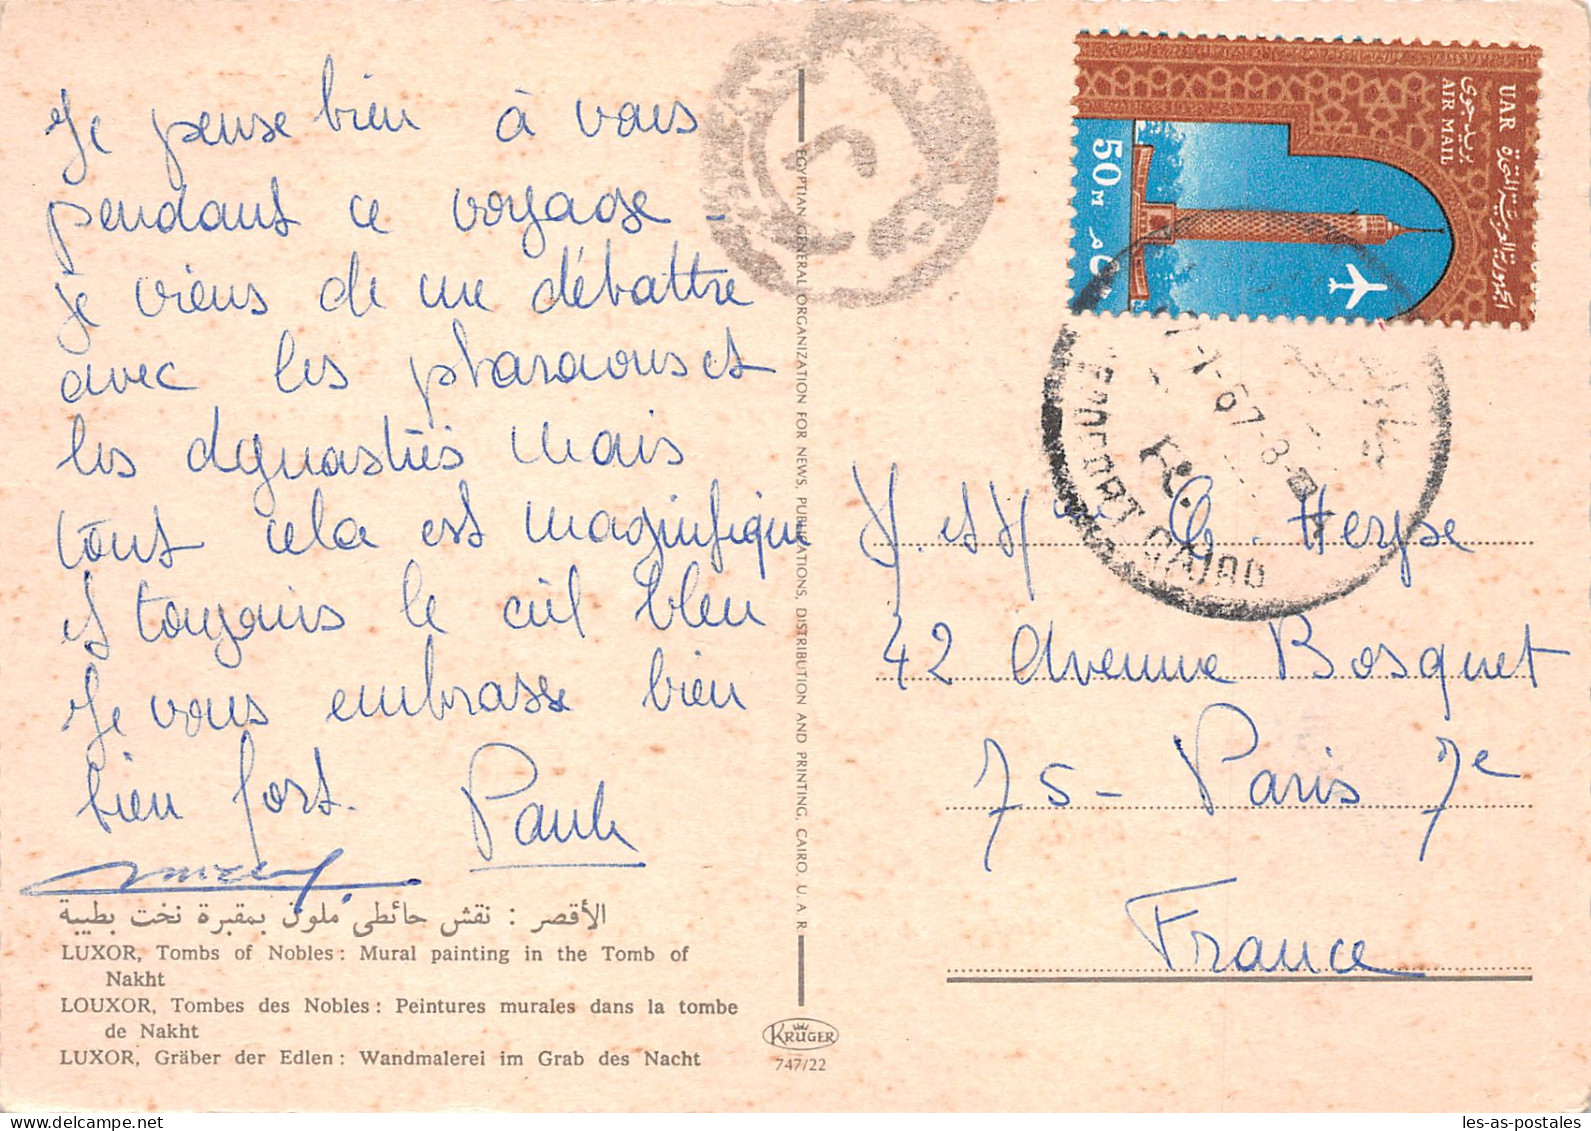 Je pense bien à vous
pendant ce voyage -
je viens de me débattre
avec les pharaons et
les dynasties mais
tout cela est magnifique
et toujours le ciel bleu
Je vous embrasse bien
bien fort.
الأقصر : نقش حائطى ملون بمقبرة نخت بطيبة
LUXOR, Tombs of Nobles: Mural painting in the Tomb of
Nakht
LOUXOR, Tombes des Nobles: Peintures murales dans la tombe
de Nakht
LUXOR, Gräber der Edlen: Wandmalerei im Grab des Nacht
EGYPTIAN GENERAL ORGANIZATION FOR NEWS, PUBLICATIONS, DISTRIBUTION AND PRINTING, CAIRO, U. A. R.
KRÜGER
747/22
UAR الجمهورية العربية المتحدة
بريد جوى
AIR MAIL
50 M م ٥٠
CAIRO
42 Avenue Bosquet
75 - Paris 7e
France
les-as-postales